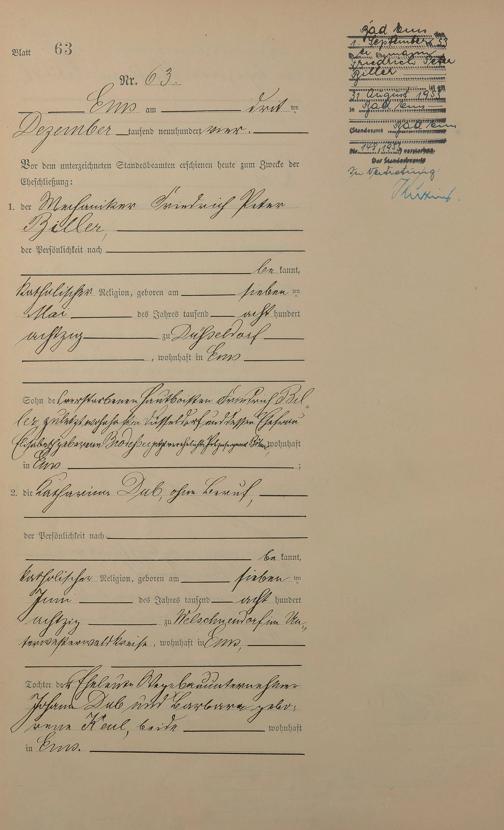 Blatt 63
Nr. 63.
Ems am drit ten
Dezember tausend neunhundert vier.
Vor dem unterzeichneten Standesbeamten erschienen heute zum Zwecke der
Eheschließung:
1. der Mechaniker Friedrich Peter
Biller,
der Persönlichkeit nach
be kannt,
katholischer Religion, geboren am sieben ten
Mai des Jahres tausend acht hundert
achtzig zu Düsseldorf
, wohnhaft in Ems
Sohn des verstorbenen Friedrich Bil-
ler, zuletzt wohnhaft in Düsseldorf und dessen Ehefrau
Elisabeth geborenen wohnhaft
in Ems ;
2. die Katharina Dab, ohne Beruf,
der Persönlichkeit nach
be kannt,
katholischer Religion, geboren am sieben ten
Juni des Jahres tausend acht hundert
achtzig zu Welschneudorf im Un-
terwesterwaldkreise, wohnhaft in Ems,
Tochter der Eheleute Wegebauunternehmer
Johann Dab und Barbara gebo-
rene Keul, beide wohnhaft
in Ems.
Bad Ems
1. September 53
Der Ehemann
Friedrich Peter
Biller
31. August 1953
in Bad Ems
Standesamt Bad Ems
Nr. verstorben.
Der Standesbeamte
In Vertretung